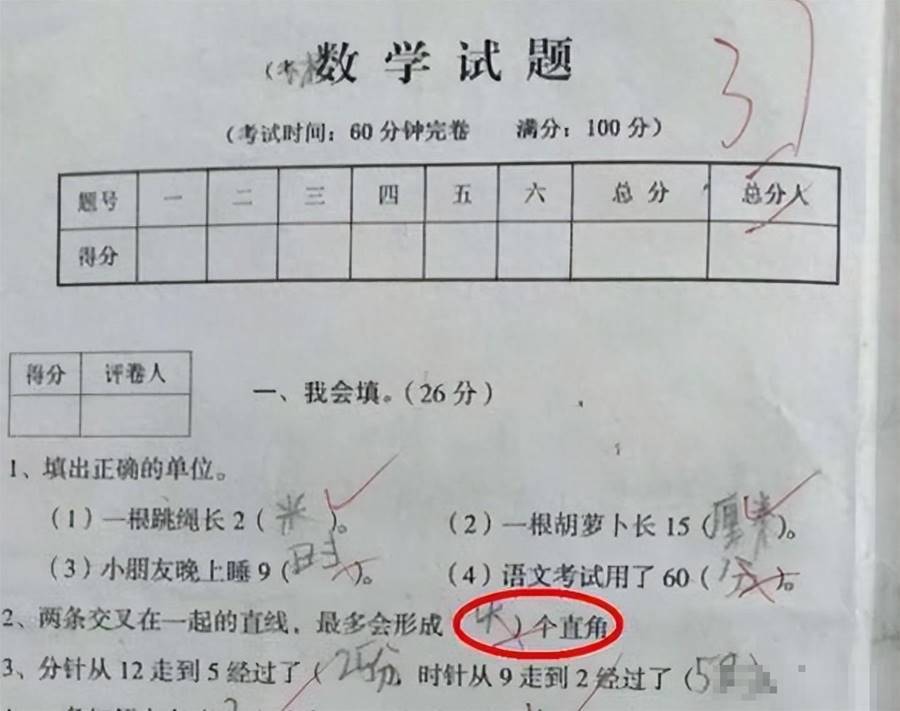 数学试题
37
（考试时间：60分钟完卷 满分：100分）
题号 一 二 三 四 五 六 总分 总分人
得分
得分 评卷人
一、我会填。（26分）
1、填出正确的单位。
（1）一根跳绳长2（米）。 （2）一根胡萝卜长15（厘米）。
（3）小朋友晚上睡9（）。 （4）语文考试用了60（分）。
2、两条交叉在一起的直线，最多会形成）个直角
3、分针从12走到5经过了（25分，时针从9走到2经过了（5